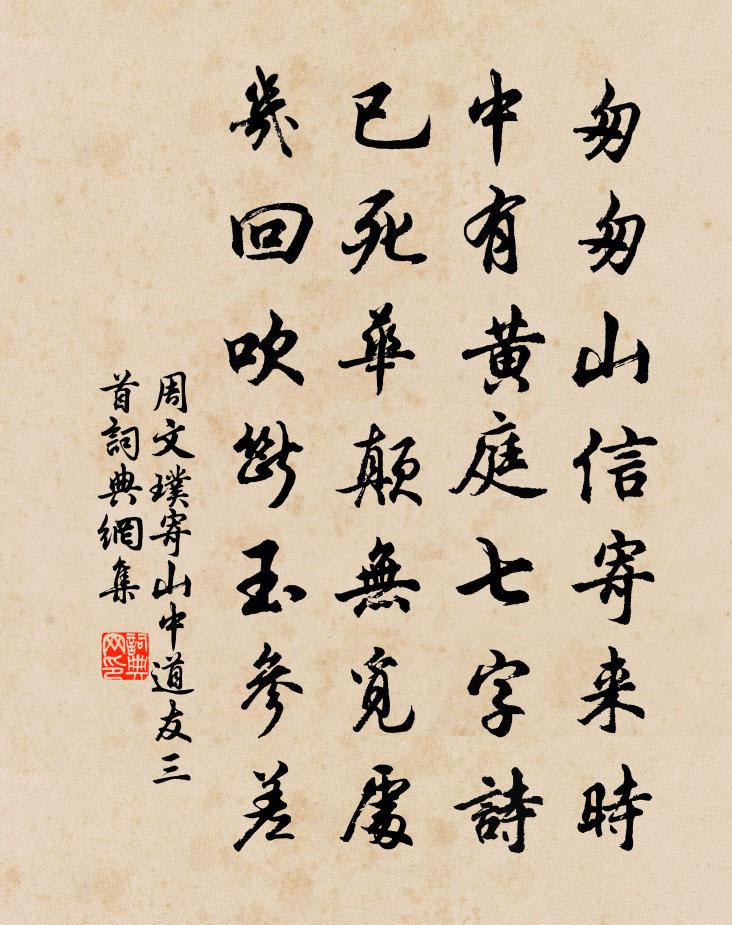 匆匆山信寄来時
中有黄庭七字詩
已死華顛無覓處
幾回吹斷玉參差
周文璞寄山中道友三
首詞典網集
詞典
网印